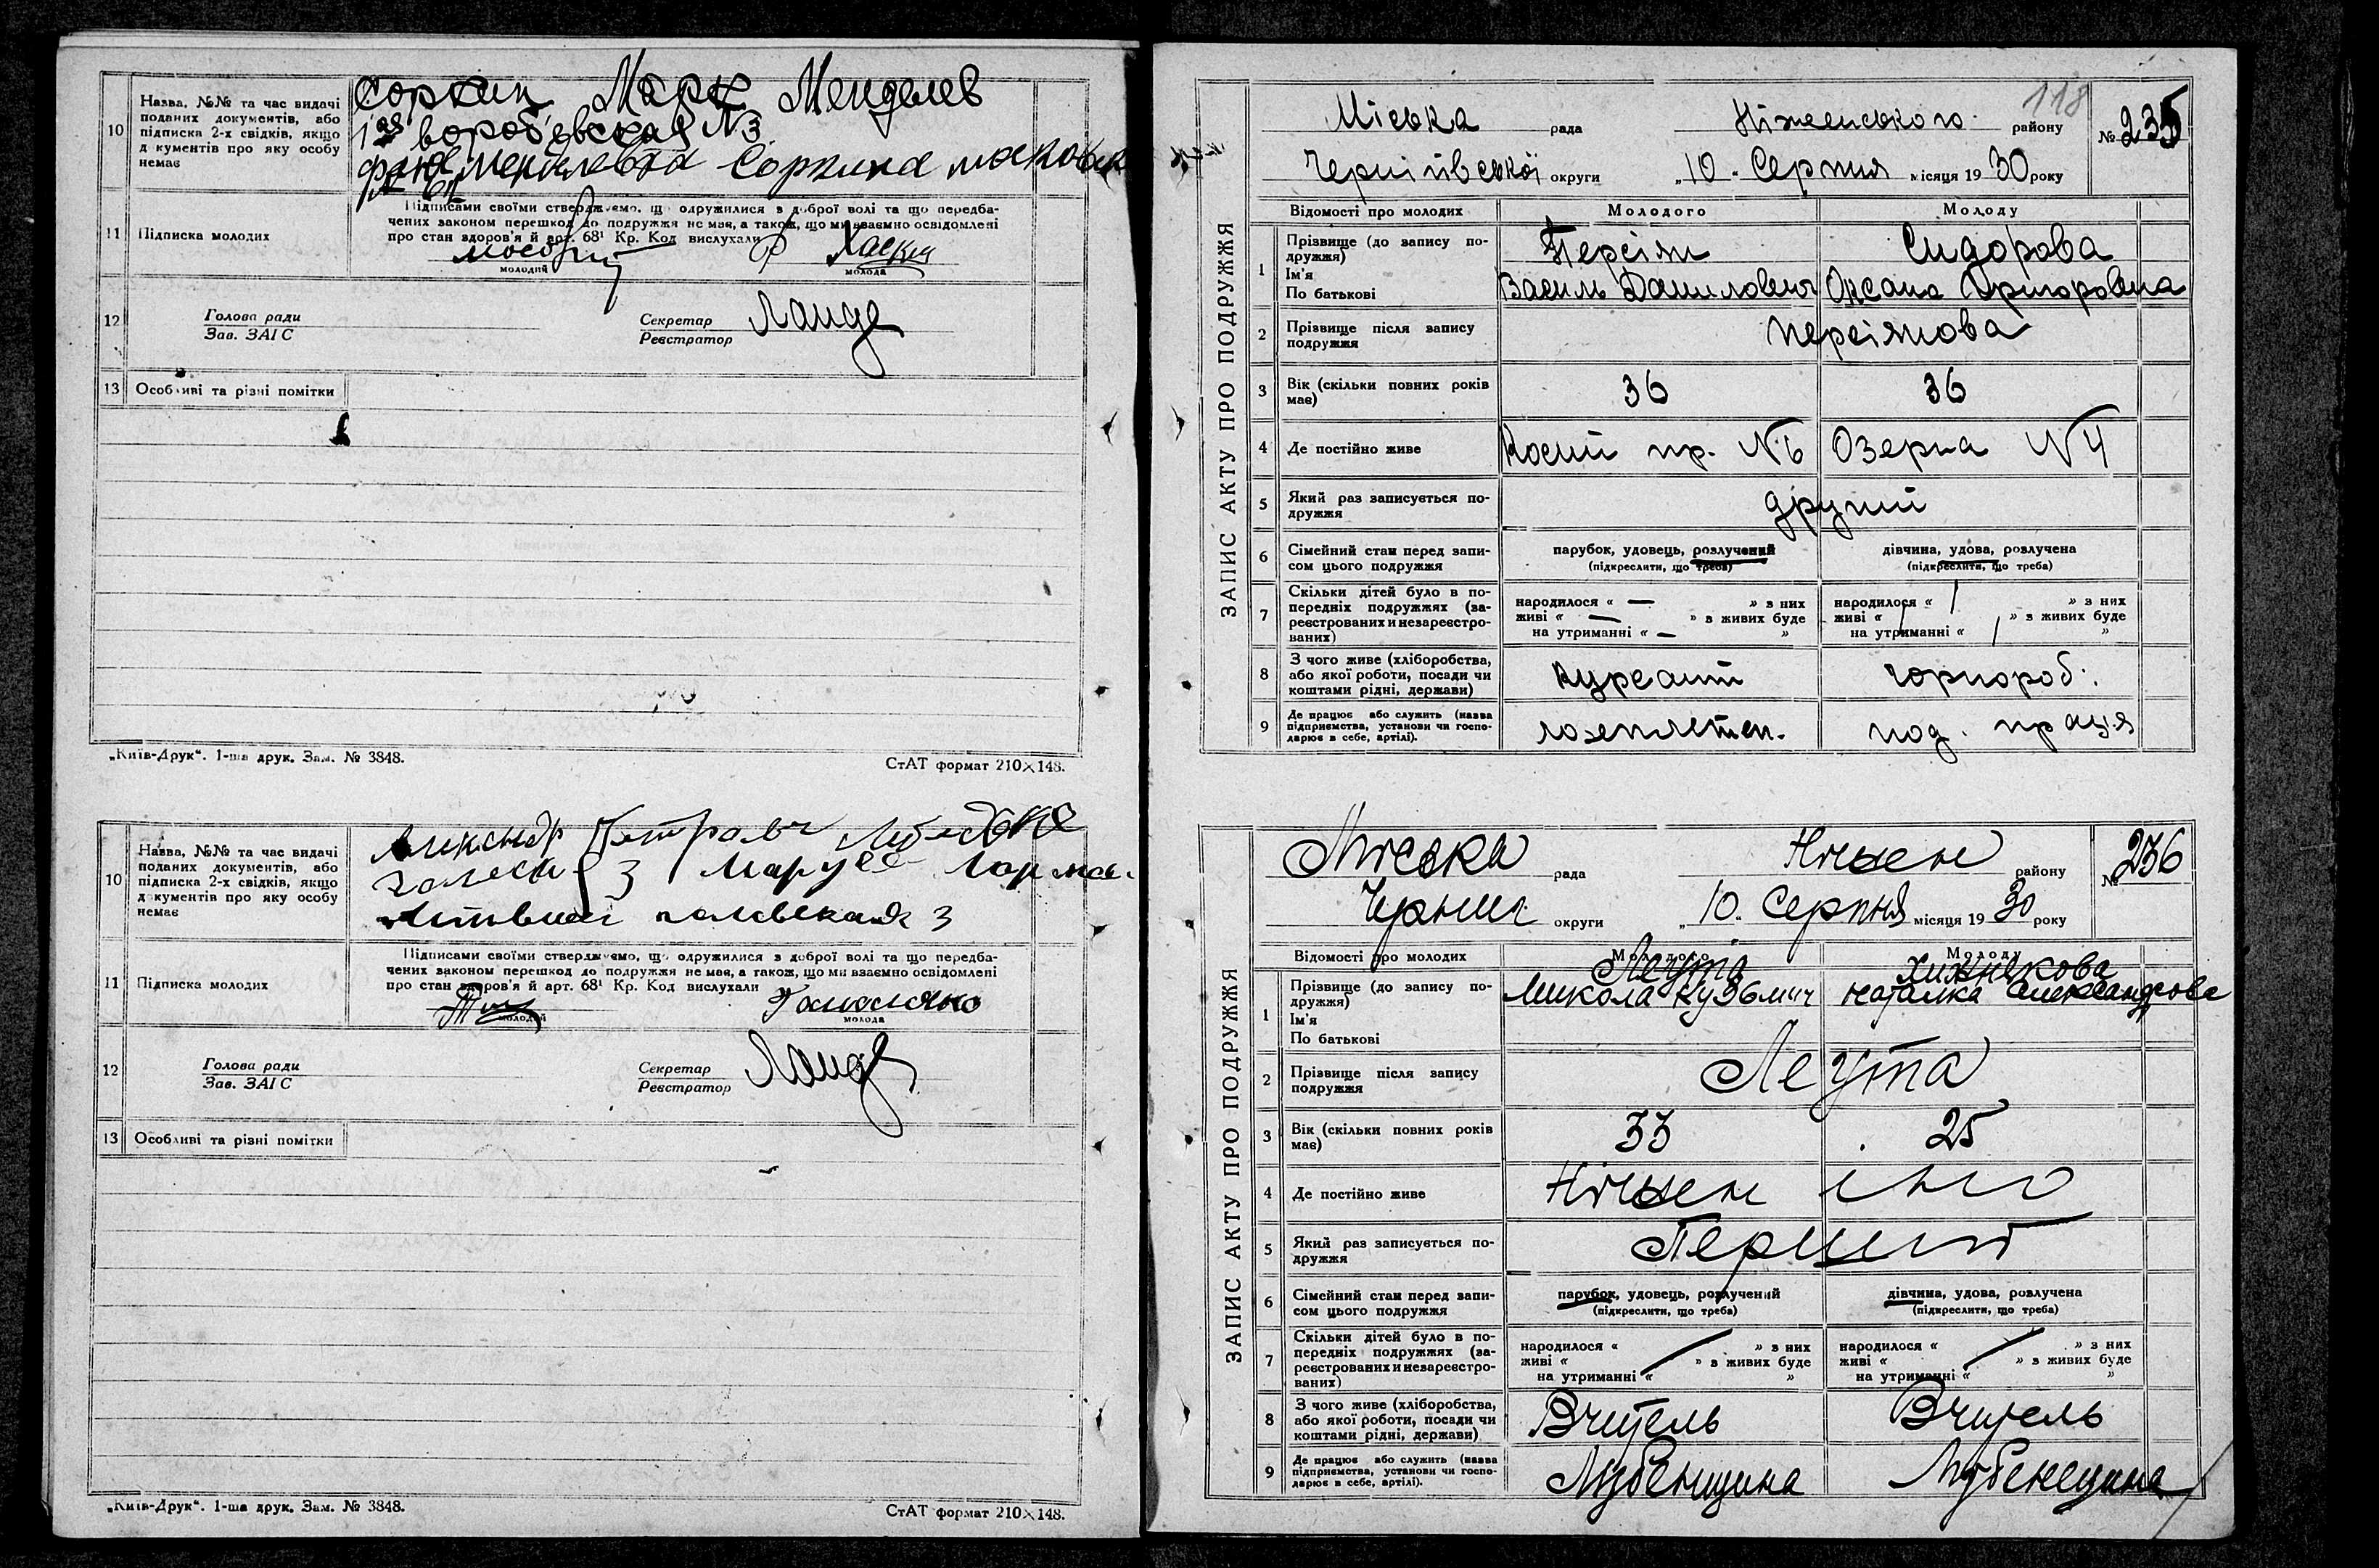 10
Назва, №№ та час видачі
поданих документів, або
підписка 2-х свідків, якщо
д кументів про яку особу
немає
Соркин Марк Менделев
1ая воробьевская №3
Менделевна Соркина
11
Підписка молодих
Підписами своїми стверджуємо, що одружилися з доброї волі та що передба-
чених законом перешкод до подружжя не має, а також, що ми взаємно освідомлені
про стан здоров'я й арт. 68¹ Кр. Код вислухали
молодий
молода
12
Голова ради
Зав. ЗАГС
Секретар
Реєстратор
Ланде
13
Особливі та різні помітки
„Київ-Друк“. 1-ша друк. Зам. № 3848.
СтАТ формат 210×148.
10
Назва, №№ та час видачі
поданих документів, або
підписка 2-х свідків, якщо
д кументів про яку особу
немає
3 Маруся
3
11
Підписка молодих
Підписами своїми стверджуємо, що одружилися з доброї волі та що передба-
чених законом перешкод до подружжя не має, а також, що ми взаємно освідомлені
про стан здоров'я й арт. 68¹ Кр. Код вислухали
молодий
молода
12
Голова ради
Зав. ЗАГС
Секретар
Реєстратор
Ланде
13
Особливі та різні помітки
„Київ-Друк“. 1-ша друк. Зам. № 3848.
СтАТ формат 210×148.
118
ЗАПИС АКТУ ПРО ПОДРУЖЖЯ
Міська рада Ніженського району № 235
Чернігівської округи „10“ Серпня місяця 1930 року
Відомості про молодих
Молодого
Молоду
1
Прізвище (до запису по-
дружжя)
Ім'я
По батькові
Персіян
Василь Данилович
Сидорова
Оксана Григоровна
2
Прізвище після запису
подружжя
Персіянова
3
Вік (скільки повних років
має)
36
36
4
Де постійно живе
Косий пр. №6
Озерна №4
5
Який раз записується по-
дружжя
другий
6
Сімейний стан перед запи-
сом цього подружжя
парубок, удовець, розлучений
(підкреслити, що треба)
дівчина, удова, розлучена
(підкреслити, що треба)
7
Скільки дітей було в по-
передніх подружжях (за-
реєстрованих и незареєстро-
ваних)
народилося « — » з них
живі « — » з живих буде
на утриманні « — »
народилося « 1 » з них
живі « 1 » з живих буде
на утриманні « 1 »
8
З чого живе (хліборобства,
або якої роботи, посади чи
коштами рідні, держави)
курсант
чорнороб.
9
Де працює або служить (назва
підприємства, установи чи госпо-
дарює в себе, артілі).
лозеплетен.
под. праця
ЗАПИС АКТУ ПРО ПОДРУЖЖЯ
Міська рада Ніжен району № 236
Черниг округи „10. Серпня місяця 1930 року
Відомості про молодих
Молодого
Молоду
1
Прізвище (до запису по-
дружжя)
Ім'я
По батькові
Леута
Микола Кузьмич
Хижнякова
Наталка Александрова
2
Прізвище після запису
подружжя
Леута
3
Вік (скільки повних років
має)
33
25
4
Де постійно живе
Ніжен
5
Який раз записується по-
дружжя
Перший
6
Сімейний стан перед запи-
сом цього подружжя
парубок, удовець, розлучений
(підкреслити, що треба)
дівчина, удова, розлучена
(підкреслити, що треба)
7
Скільки дітей було в по-
передніх подружжях (за-
реєстрованих и незареєстро-
ваних)
народилося « » з них
живі « » з живих буде
на утриманні « »
народилося « » з них
живі « » з живих буде
на утриманні « »
8
З чого живе (хліборобства,
або якої роботи, посади чи
коштами рідні, держави)
Вчитель
Вчитель
9
Де працює або служить (назва
підприємства, установи чи госпо-
дарює в себе, артілі).
Лубенщина
Лубенщина